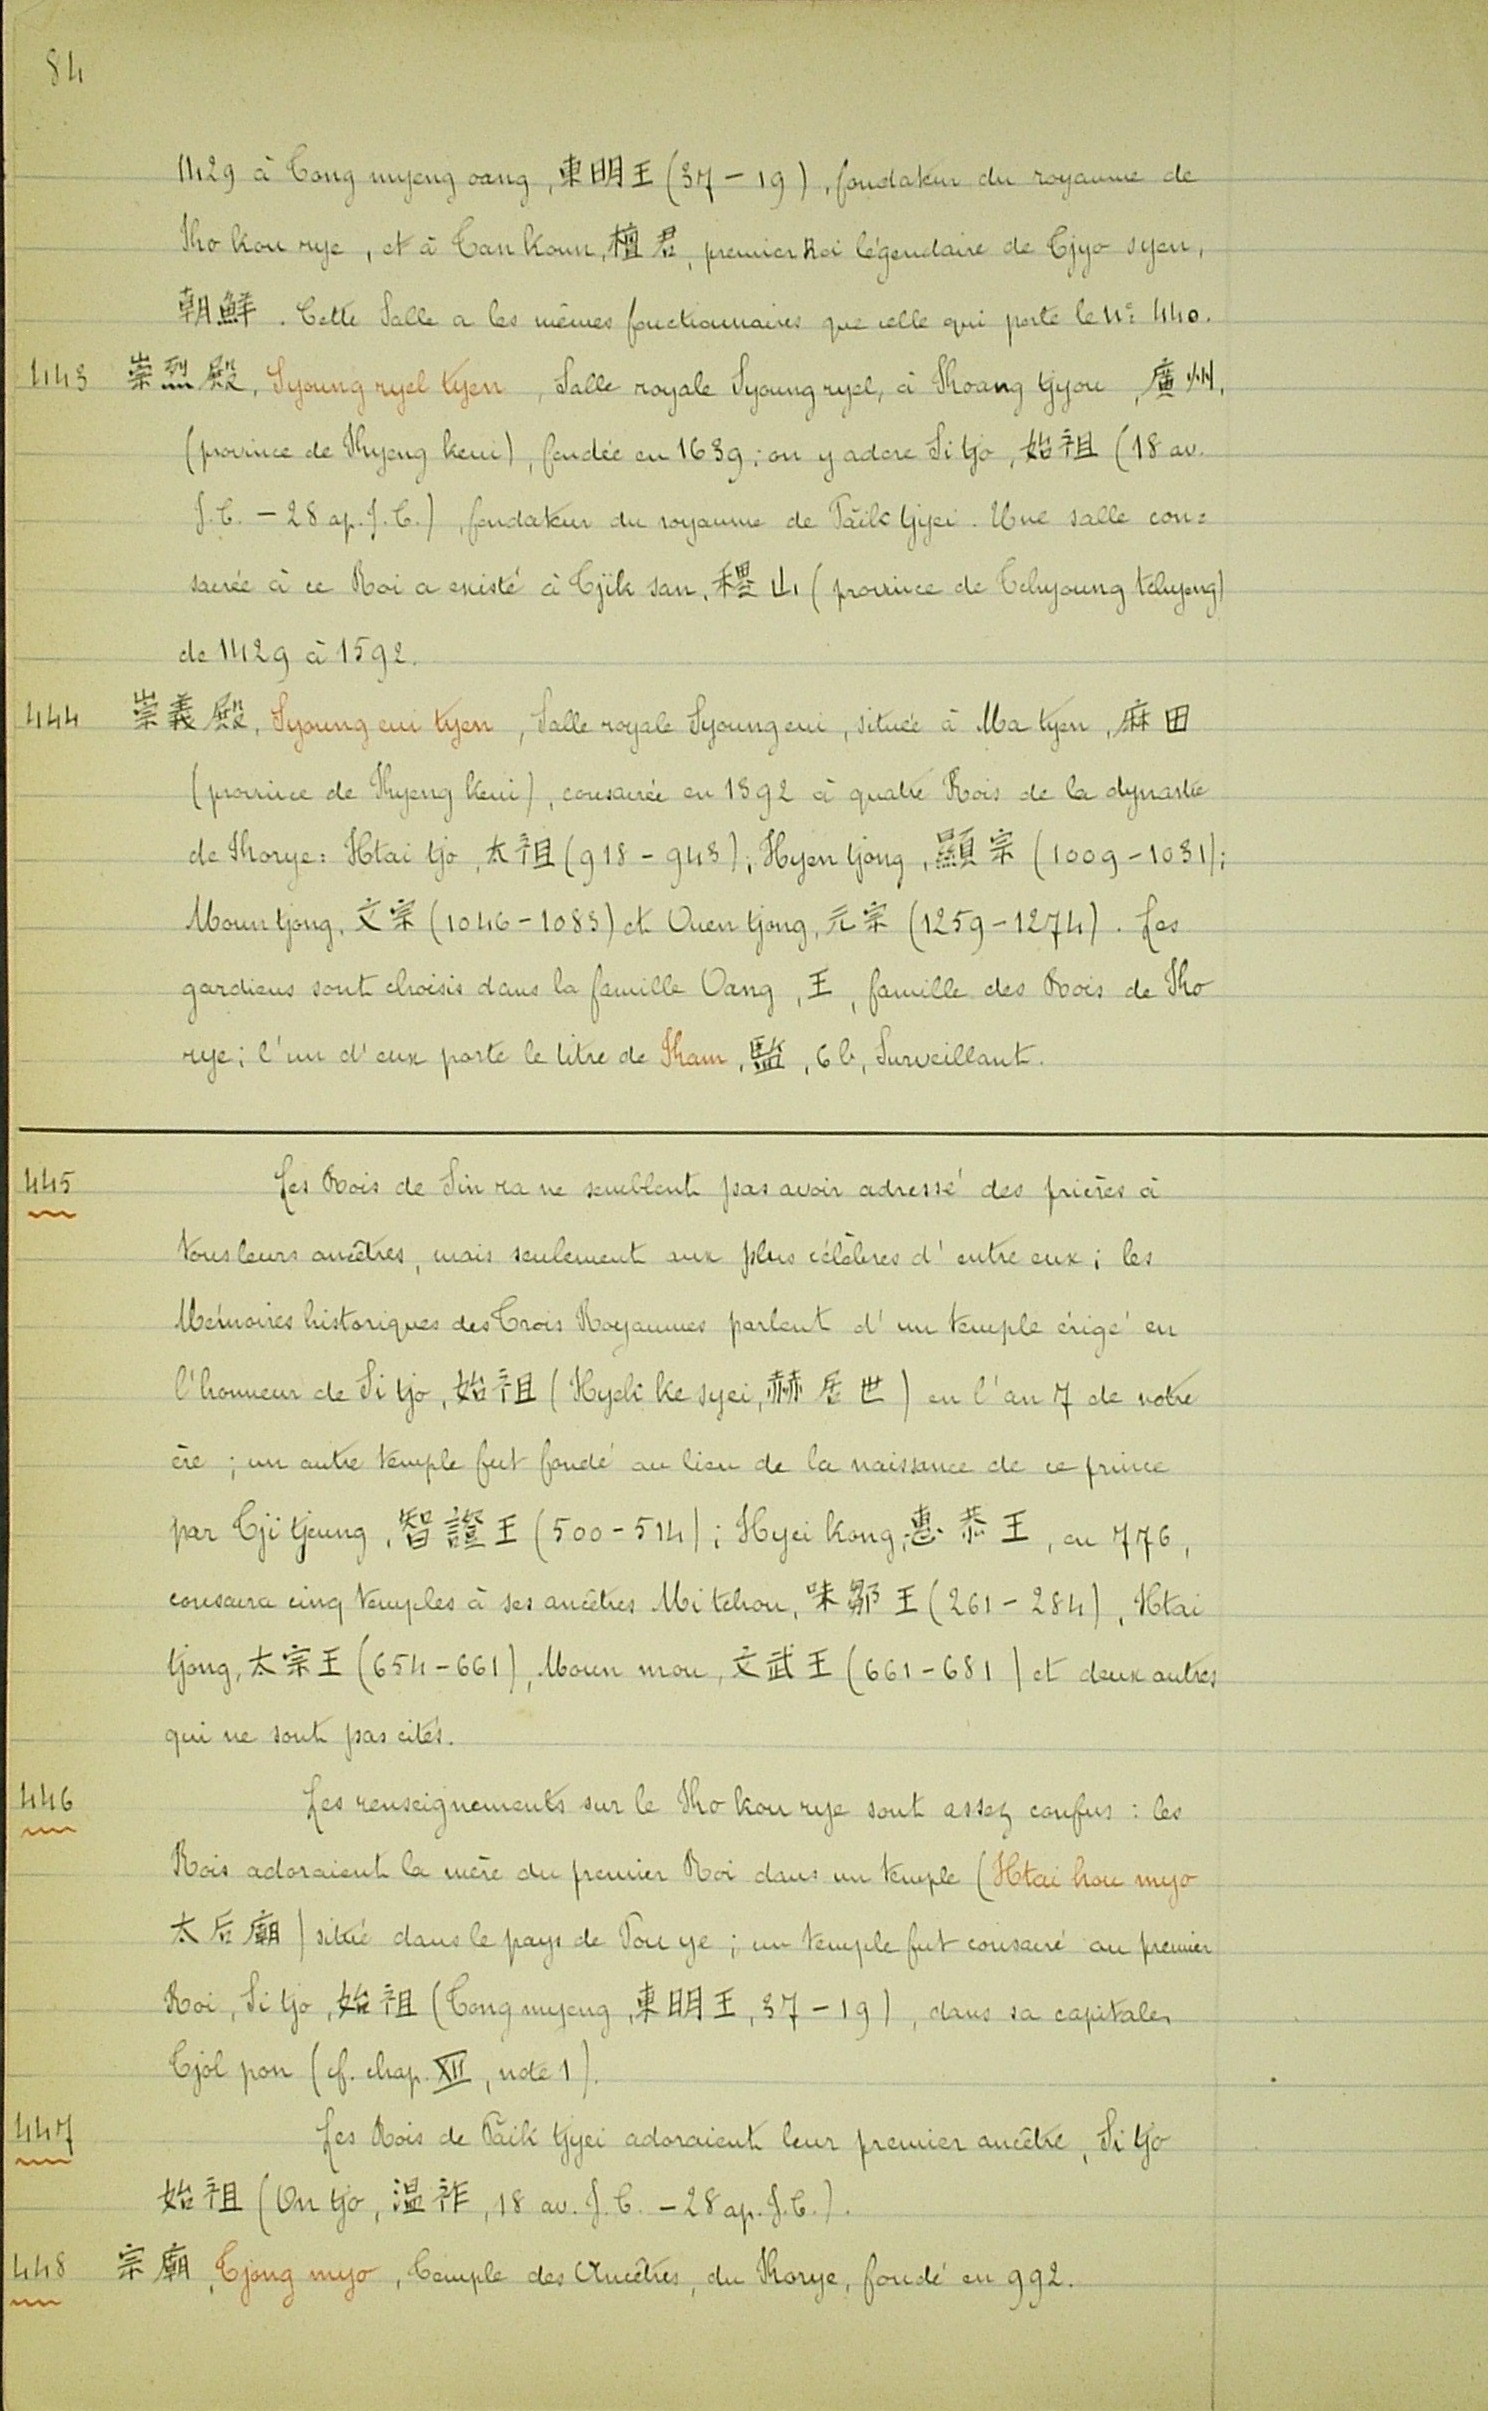 84
1429 à Tong myeng oang, 東明王 (37 – 19), fondateur du royaume de
Kho kou rye, et à Tan koun, 檀君, premier Roi légendaire de Tjyo syen,
朝鮮. Cette Salle a les mêmes fonctionnaires que celle qui porte le No 440.
443 崇烈殿, Syoung ryel tyen, Salle royale Syoung ryel, à Khoang tjyou, 廣州,
(province de Khyeng keui), fondée en 1639; on y adore Si tjo, 始祖 (18 av.
J. C. – 28 ap. J. C.), fondateur du royaume de Păik tjyei. Une salle con=
sacrée à ce Roi a existé à Tjik san, 稷山 (province de Tchyoung tchyeng)
de 1429 à 1592.
444 崇義殿, Syoung eui tyen, Salle royale Syoung eui, située à Ma tyen, 麻田
(province de Khyeng keui), consacrée en 1392 à quatre Rois de la dynastie
de Khorye: Htai tjo, 太祖 (918 – 943); Hyen tjong, 顯宗 (1009 – 1031);
Moun tjong, 文宗 (1046 – 1083) et Ouen tjong, 元宗 (1259 – 1274). Les
gardiens sont choisis dans la famille Oang, 王, famille des Rois de Kho
rye; l'un d'eux porte le titre de Kham, 監, 6b, Surveillant.
445 Les Rois de Sin ra ne semblent pas avoir adressé des prières à
tous leurs ancêtres, mais seulement aux plus célèbres d'entre eux; les
Mémoires historiques des Trois Royaumes parlent d'un temple érigé en
l'honneur de Si tjo, 始祖 (Hyek ke syei, 赫居世) en l'an 7 de notre
ère; un autre temple fut fondé au lieu de la naissance de ce prince
par Tji tjeung, 智證王 (500 – 514); Hyei kong, 惠恭王, en 776,
consacra cinq temples à ses ancêtres Mi tchou, 味鄒王 (261 – 284), Htai
tjong, 太宗王 (654 – 661), Moun mou, 文武王 (661 – 681) et deux autres
qui ne sont pas cités.
446 Les renseignements sur le Kho kou rye sont assez confus: les
Rois adoraient la mère du premier Roi dans un temple (Htai hou myo
太后廟) situé dans le pays de Pou ye; un temple fut consacré au premier
Roi, Si tjo, 始祖 (Tong myeng, 東明王, 37 – 19), dans sa capitale,
Tjol pon (cf. chap. XII, note 1).
447 Les Rois de Păik tjyei adoraient leur premier ancêtre, Si tjo
始祖 (On tjo, 温祚, 18 av. J. C. – 28 ap. J. C.).
448 宗廟, Tjong myo, Temple des Ancêtres, du Khorye, fondé en 992.